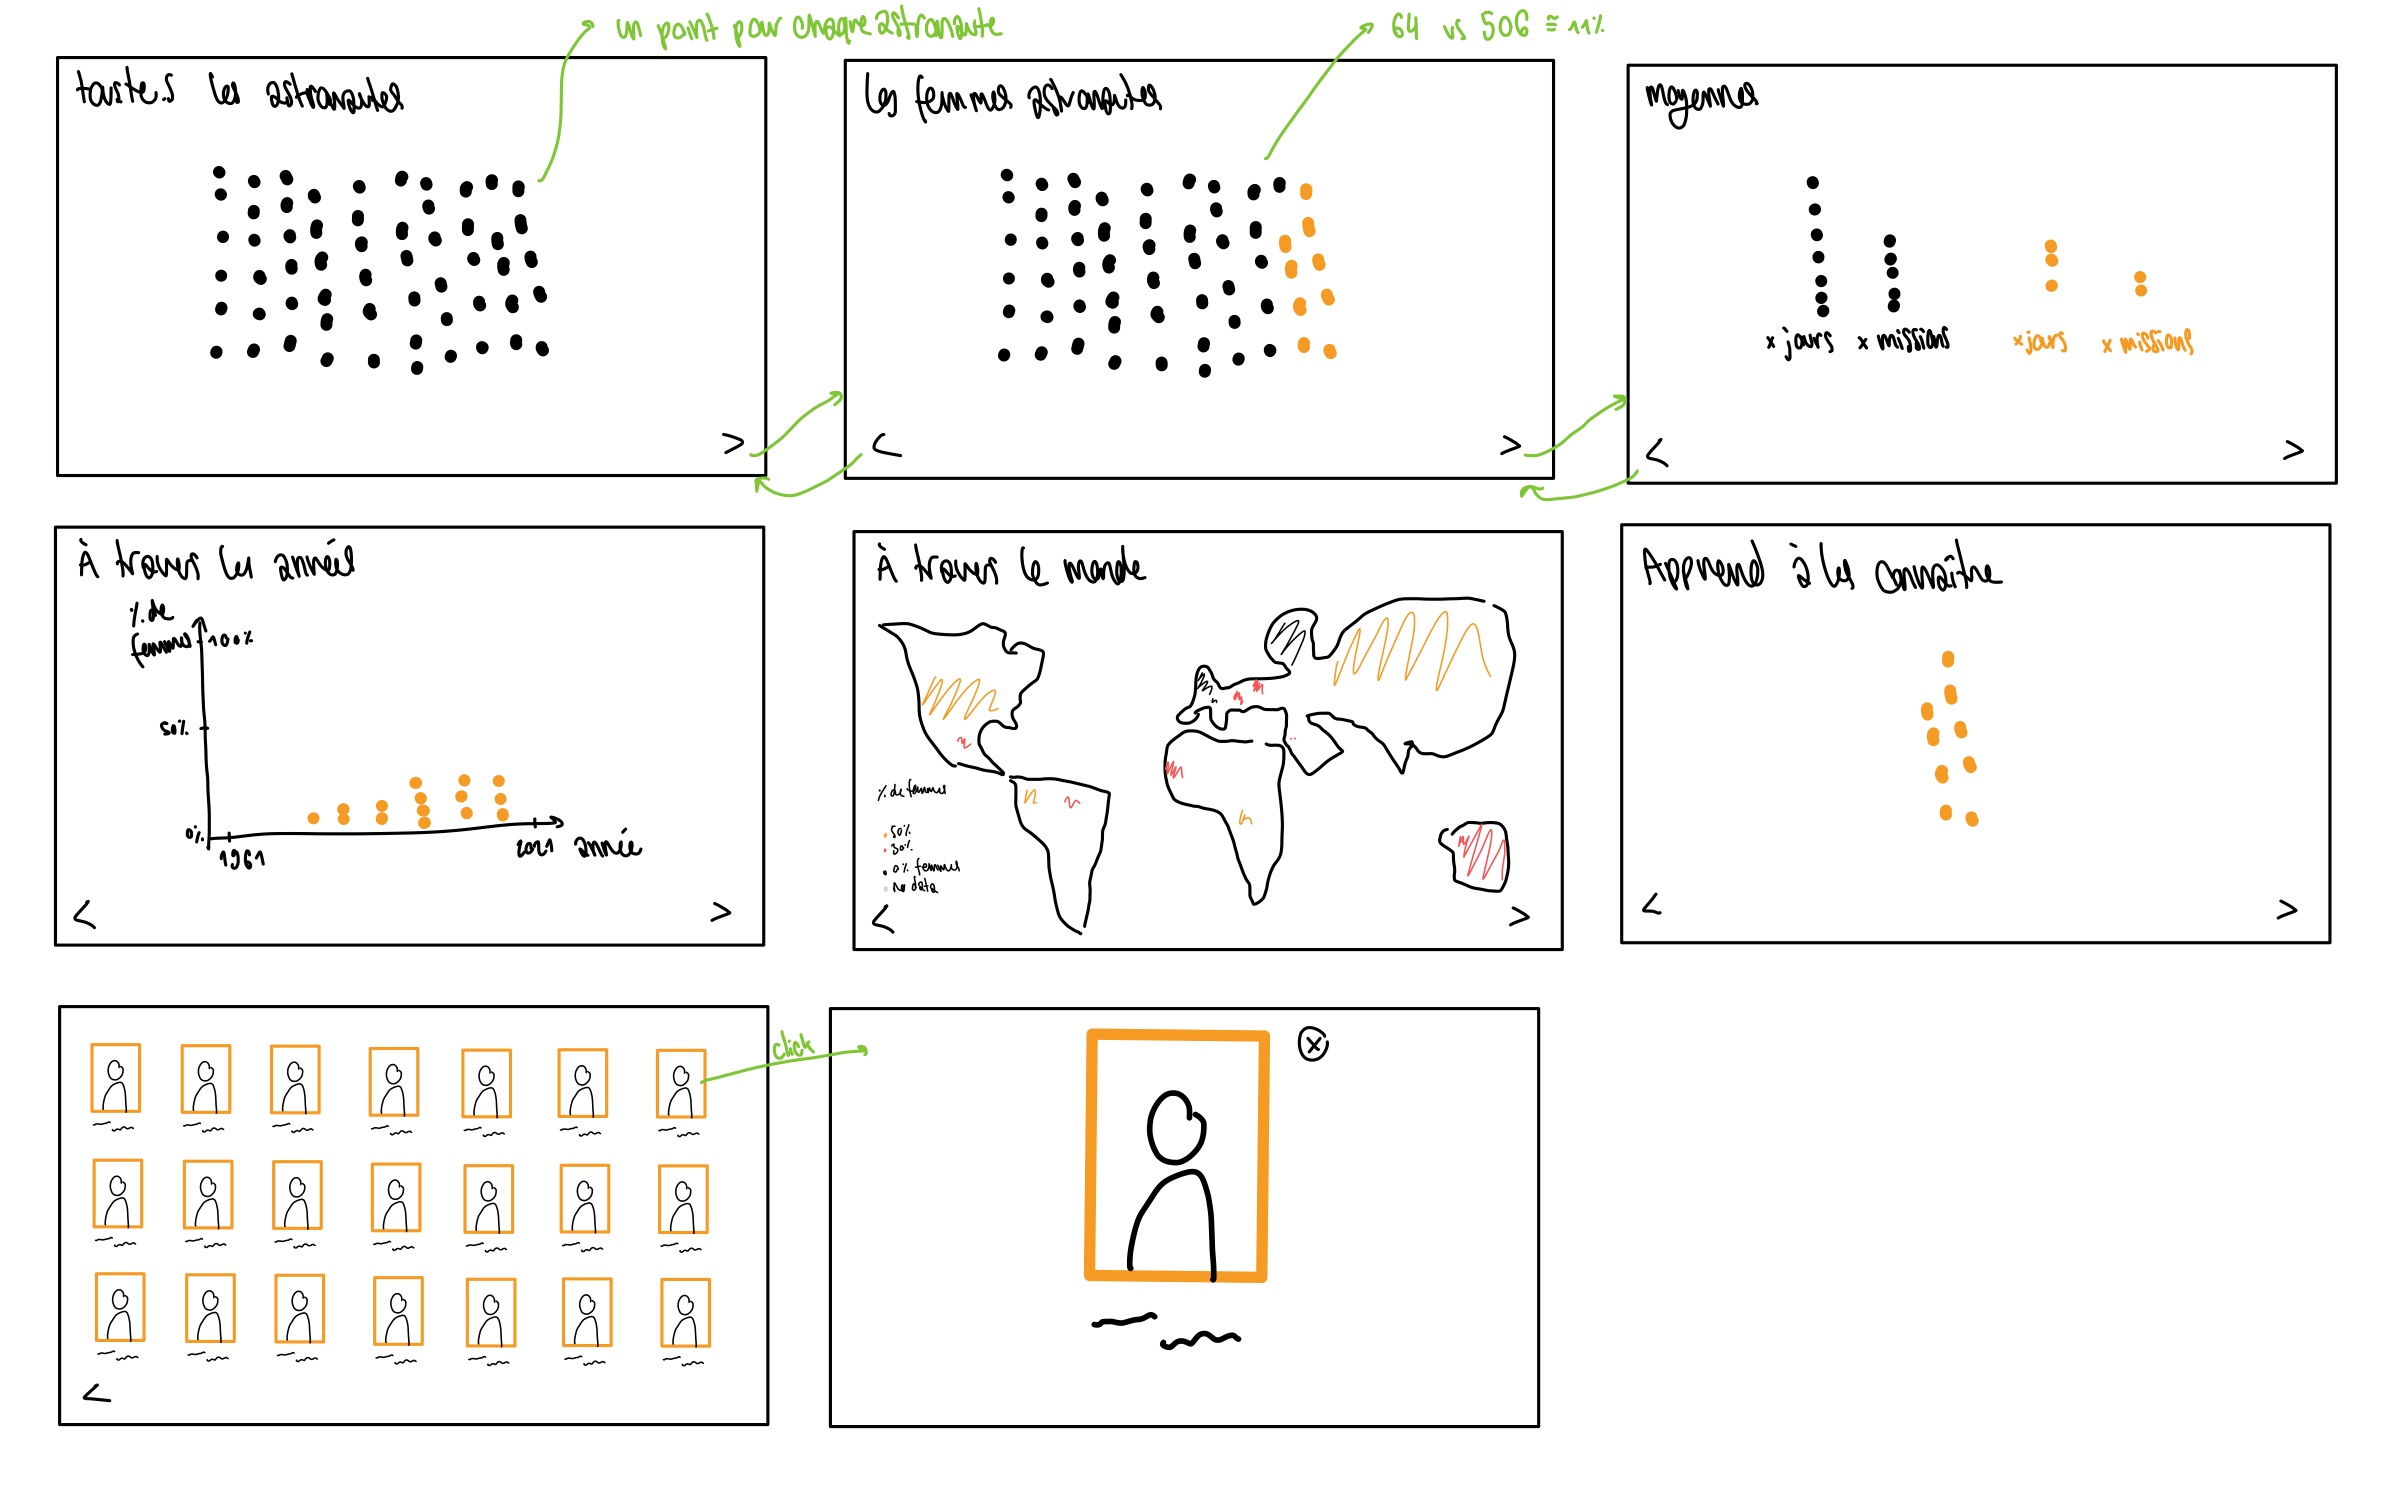 un point pour chaque astronaute
64 vs 506 ≅ 11%
toute.s les astronautes
Les femmes astronautes
moyennes
x jours
x missions
x jours
x missions
À travers les années
% de
femmes
100%
50%
0%
1961
2021
année
À travers le monde
% de femmes
50%
30%
0% femmes
no data
Apprend à les connaître
click